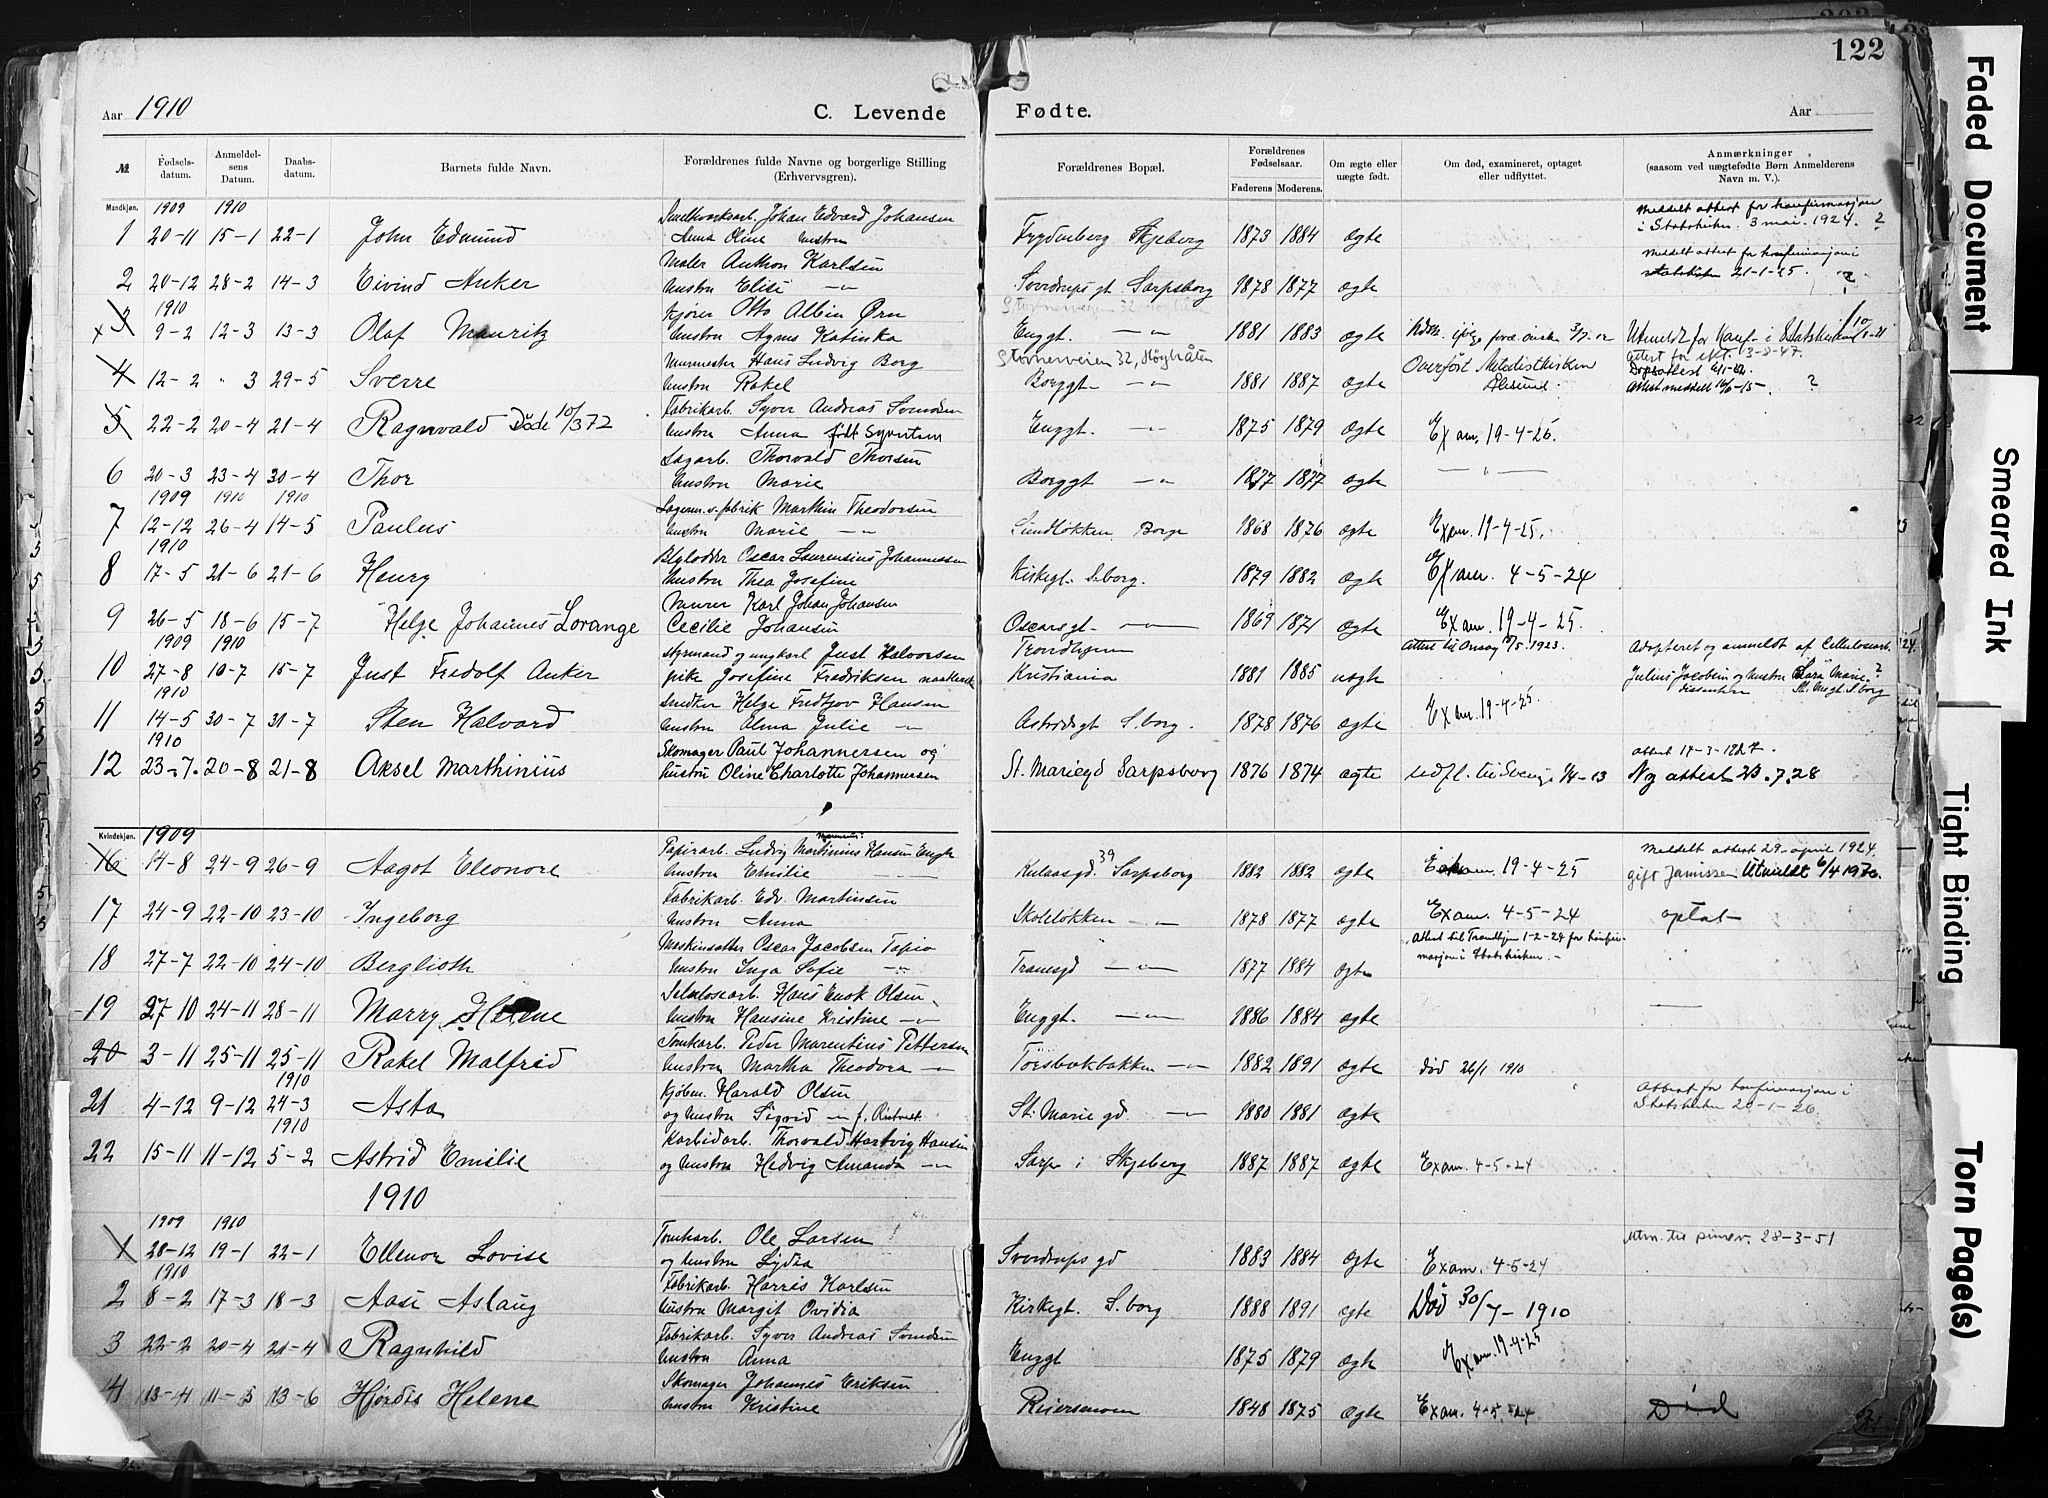 122
Aar 1910
C. Levende Fødte.
Aar
№ Fødsels-datum. Anmeldel-sens Datum. Daabs-datum. Barnets fulde Navn. Forældrenes fulde Navne og borgerlige Stilling (Erhvervsgren). Forældrenes Bopæl. Forældrenes Fødselsaar. Faderens Moderens. Om ægte eller uægte født. Om død, examineret, optaget eller udflyttet. Anmærkninger (saasom ved uægtefødte Børn Anmelderens Navn m. V.).
Mandkjøn. 1909 1910
Johan Edvard Johansen Meddelt attest for konfirmasjon
1 20-11 15-1 22-1 John Edmund Anna Oline hustru Skjeberg 1873 1884 ægte i Statskirken. 3 mai. 1924. ?
Maler Anthon Karlsen Meddelt attest for konfirmasjon i
2 20-12 28-2 14-3 Eivind Anker hustru Elise -"- Sverdrups gt. Sarpsborg 1878 1877 ægte 21-1-25.
1910 kjører Otto Albin Ørn
x 3 9-2 12-3 13-3 Olaf Mauritz hustru Agnes Katinka Enggt. -"- 1881 1883 ægte
Murmester Hans Ludvig Borg Størnerveien 32, Overført Metodistkirken Attest for 13-8-47.
4 12-2 " 3 29-5 Sverre hustru Rakel Borggt -"- 1881 1887 ægte Ålesund. Attest meddelt ?
Fabrikarb. Syver Andreas Svendsen
5 22-2 20-4 21-4 Ragnvald Døde 10/3 72 hustru Anna født Syvertsen Enggt. -"- 1875 1879 ægte Exam. 19-4-25.
Sagarb. Thorvald Thorsen
6 20-3 23-4 30-4 Thor hustru Marie Borggt -"- 1877 1877 ægte — " —
1909 1910 1910 Marthin Theodorsen
7 12-12 26-4 14-5 Paulus hustru Marie -"- Sundløkken Borge 1868 1876 ægte Exam. 19-4-25.
1910 Oscar Laurensius Johannessen
8 17-5 21-6 21-6 Henry hustru Thea Josefine Kirkegt. S.borg. 1879 1882 ægte Exam. 4-5-24
Murer Karl Johan Johansen
9 26-5 18-6 15-7 Helge Johannes Lorange Cecilie Johansen Oscarsgt. -"- 1869 1871 ægte Exam. 19-4-25.
1909 1910 styrmand og ungkarl Just Halvorsen Trondhjem 1923. Adopteret og anmeldt af Cellulosearb.
10 27-8 10-7 15-7 Just Fredolf Anker pike Josefine Fredriksen Kristiania 1881 1885 uægte Julius Jacobsen og hustru Lara Marie ?
1910 Helge Fridtjov Hansen
11 14-5 30-7 31-7 Sten Halvard hustru Alma Julie -"- Astridsgt S.borg. 1878 1876 ægte Exam. 19-4-25.
1910 Skomager Paul Johannersen og attest 17-3-1927.
12 23-7. 20-8 21-8 Aksel Marthinius hustru Oline Charlotte Johannersen St. Mariegd Sarpsborg 1876 1874 ægte udfl. til Sverige Ny attest 23.7.28
Kvindekjøn. 1909
Papirarb. Ludvig Martinius Hansen Engh Meddelt attest 29-april 1924.
16 14-8 24-9 26-9 Aagot Eleonore hustru Emilie Kulaasgd. 39 Sarpsborg 1882 1882 ægte Exam. 19-4-25 gift Janissen Utmeldt 6/4 1976.
Fabrikarb. Edv. Martinsen
17 24-9 22-10 23-10 Ingeborg hustru Anna Skoleløkken -"- 1878 1877 ægte Exam. 4-5-24 optat
Oscar Jacobsen Tapio Attest til Trondhjem 1-2-24 for konfir-
18 27-7 22-10 24-10 Berglioth hustru Inga Sofie -"- Tranegd -"- 1877 1884 ægte masjon i Statskirken.-
Hans Enok Olsen
19 27-10 24-11 28-11 Marry Helene hustru Hansine Kristine -"- Enggt. -"- 1886 1884 ægte —
Tomtarb. Peder Marentius Pettersen
20 3-11 25-11 25-11 Rakel Malfrid hustru Martha Theodora -"- Torsbækbakken -"- 1882 1891 ægte død 26/1 1910
1910 kjøbm. Harald Olsen Attest for konfirmasjon i
21 4-12 9-12 24-3 Asta og hustru Sigrid St. Marie gd. -"- 1880 1881 ægte Statskirken 20-1-26.
1910 Karbidarb. Thorvald Hartvig Hansen
22 15-11 11-12 5-2 Astrid Emilie og hustru Hedvig Amanda -"- Sarp i Skjeberg 1887 1887 ægte Exam. 4-5-24
1910
1909 1910 Tomtarb. Ole Larsen 28-3-51
1 28-12 19-1 22-1 Ellenor Lovise og hustru Lydia Sverdrups gd 1883 1884 ægte Exam. 4-5-24
1910 Fabrikarb. Harris Karlsen
2 8-2 17-3 18-3 Aase Aslaug hustru Margit Ovidia Kirkegt. S.borg 1888 1891 ægte Død 30/7-1910
Fabrikarb. Syver Andreas Svendsen
3 22-2 20-4 21-4 Ragnhild hustru Anna Enggt 1875 1879 ægte Exam. 19-4-25
Skomager Johannes Eriksen
4 13-4 11-5 13-6 Hjørdis Helene hustru Kristine Reiersmoen 1848 1875 ægte Exam. 4-5-24 Død
Faded Document
Smeared Ink
Tight Binding
Torn Page(s)